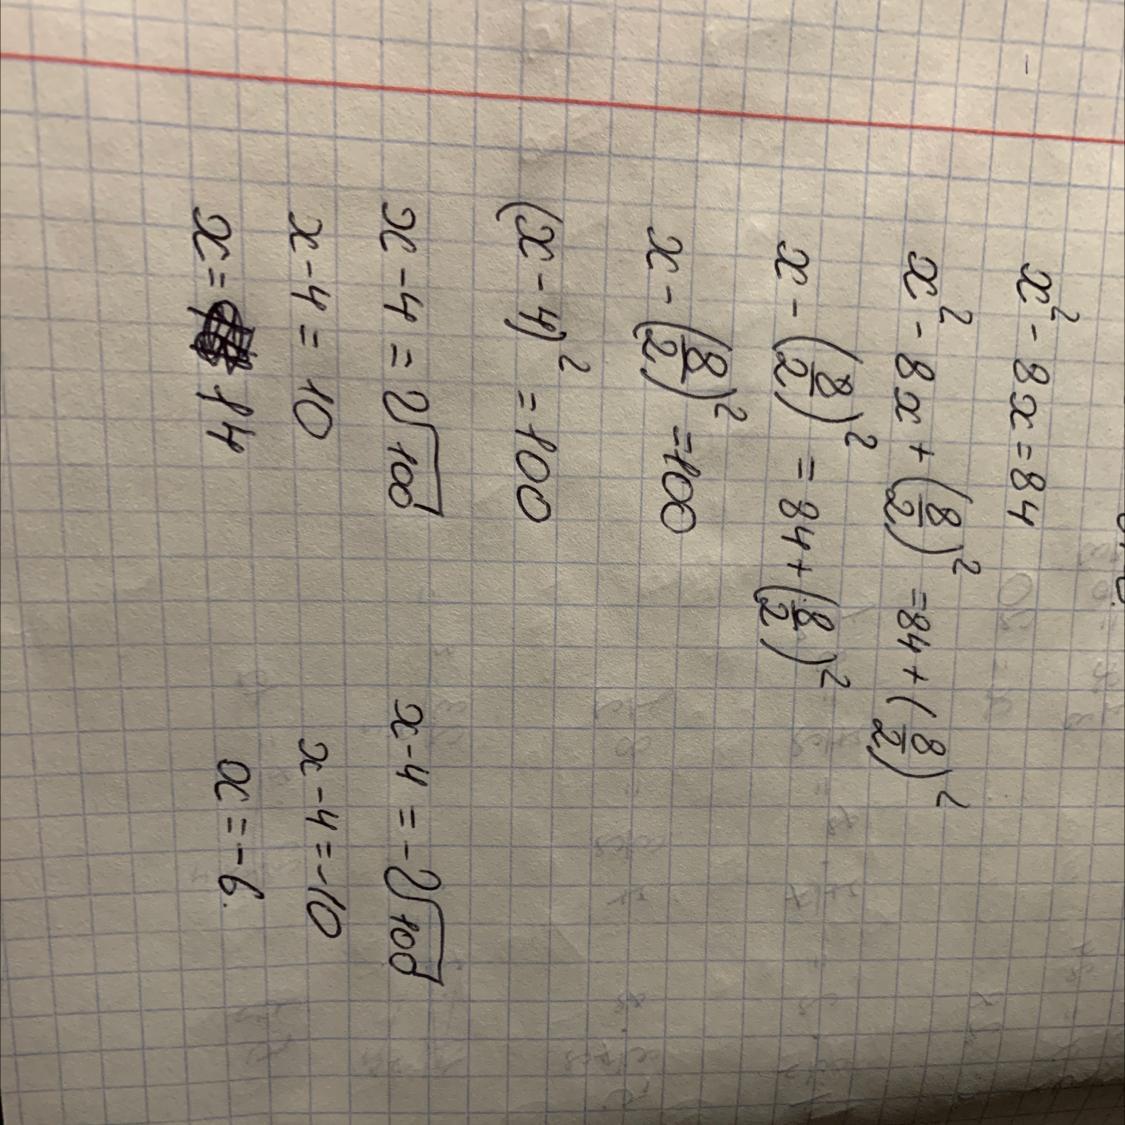 x² - 8x = 84
x² - 8x + (8/2)² = 84 + (8/2)²
x - (8/2)² = 84 + (8/2)²
x - (8/2)² = 100
(x - 4)² = 100
x - 4 = √100 x - 4 = -√100
x - 4 = 10 x - 4 = -10
x = 14 x = -6